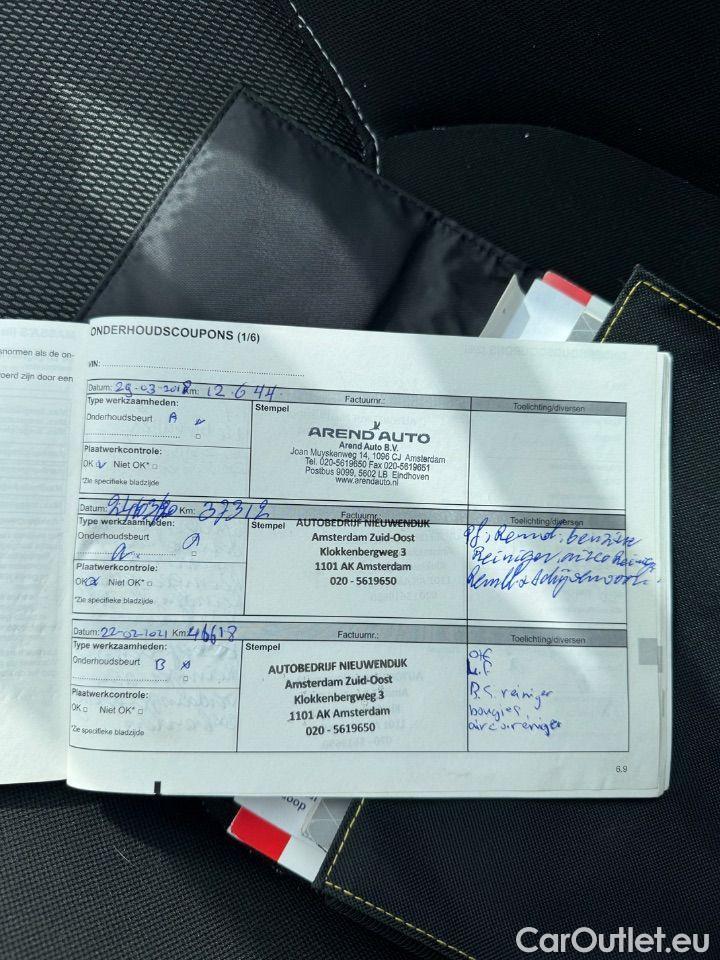 snormen als de on-
oerd zijn door een
ONDERHOUDSCOUPONS (1/6)
VIN:
Datum: 29-03-2018 Km: 12644 Factuurnr.:
Toelichting/diversen
Type werkzaamheden:
Onderhoudsbeurt A
Stempel
AREND AUTO
Arend Auto B.V.
Joan Muyskenweg 14, 1096 CJ Amsterdam
Tel. 020-5619650 Fax 020-5619651
Postbus 9099, 5602 LB Eindhoven
www.arendauto.nl
Plaatwerkcontrole:
OK Niet OK*
*Zie specifieke bladzijde
Datum: Km: 37312 Factuurnr.:
Toelichting/diversen
Type werkzaamheden:
Onderhoudsbeurt
Stempel
AUTOBEDRIJF NIEUWENDIJK
Amsterdam Zuid-Oost
Klokkenbergweg 3
1101 AK Amsterdam
020 - 5619650
benzine
Reiniger, airco Reiniger
Plaatwerkcontrole:
OK Niet OK*
*Zie specifieke bladzijde
Datum: 22-02-2021 Km: 46618 Factuurnr.:
Toelichting/diversen
Type werkzaamheden:
Onderhoudsbeurt B
Stempel
AUTOBEDRIJF NIEUWENDIJK
Amsterdam Zuid-Oost
Klokkenbergweg 3
1101 AK Amsterdam
020 - 5619650
B.S. reiniger
bougies
airco reiniger
Plaatwerkcontrole:
OK Niet OK*
*Zie specifieke bladzijde
6.9
CarOutlet.eu